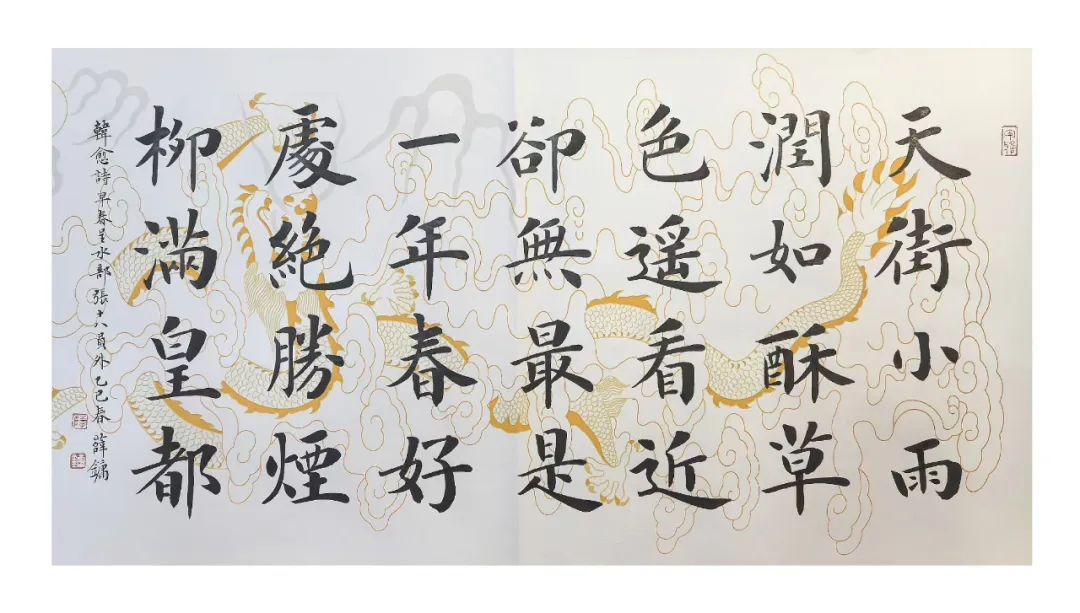 天街小雨
潤如酥草
色遥看近
卻無最是
一年春好
處絕勝煙
柳滿皇都
韓愈詩早春呈水部張十八員外乙巳春薛鏞